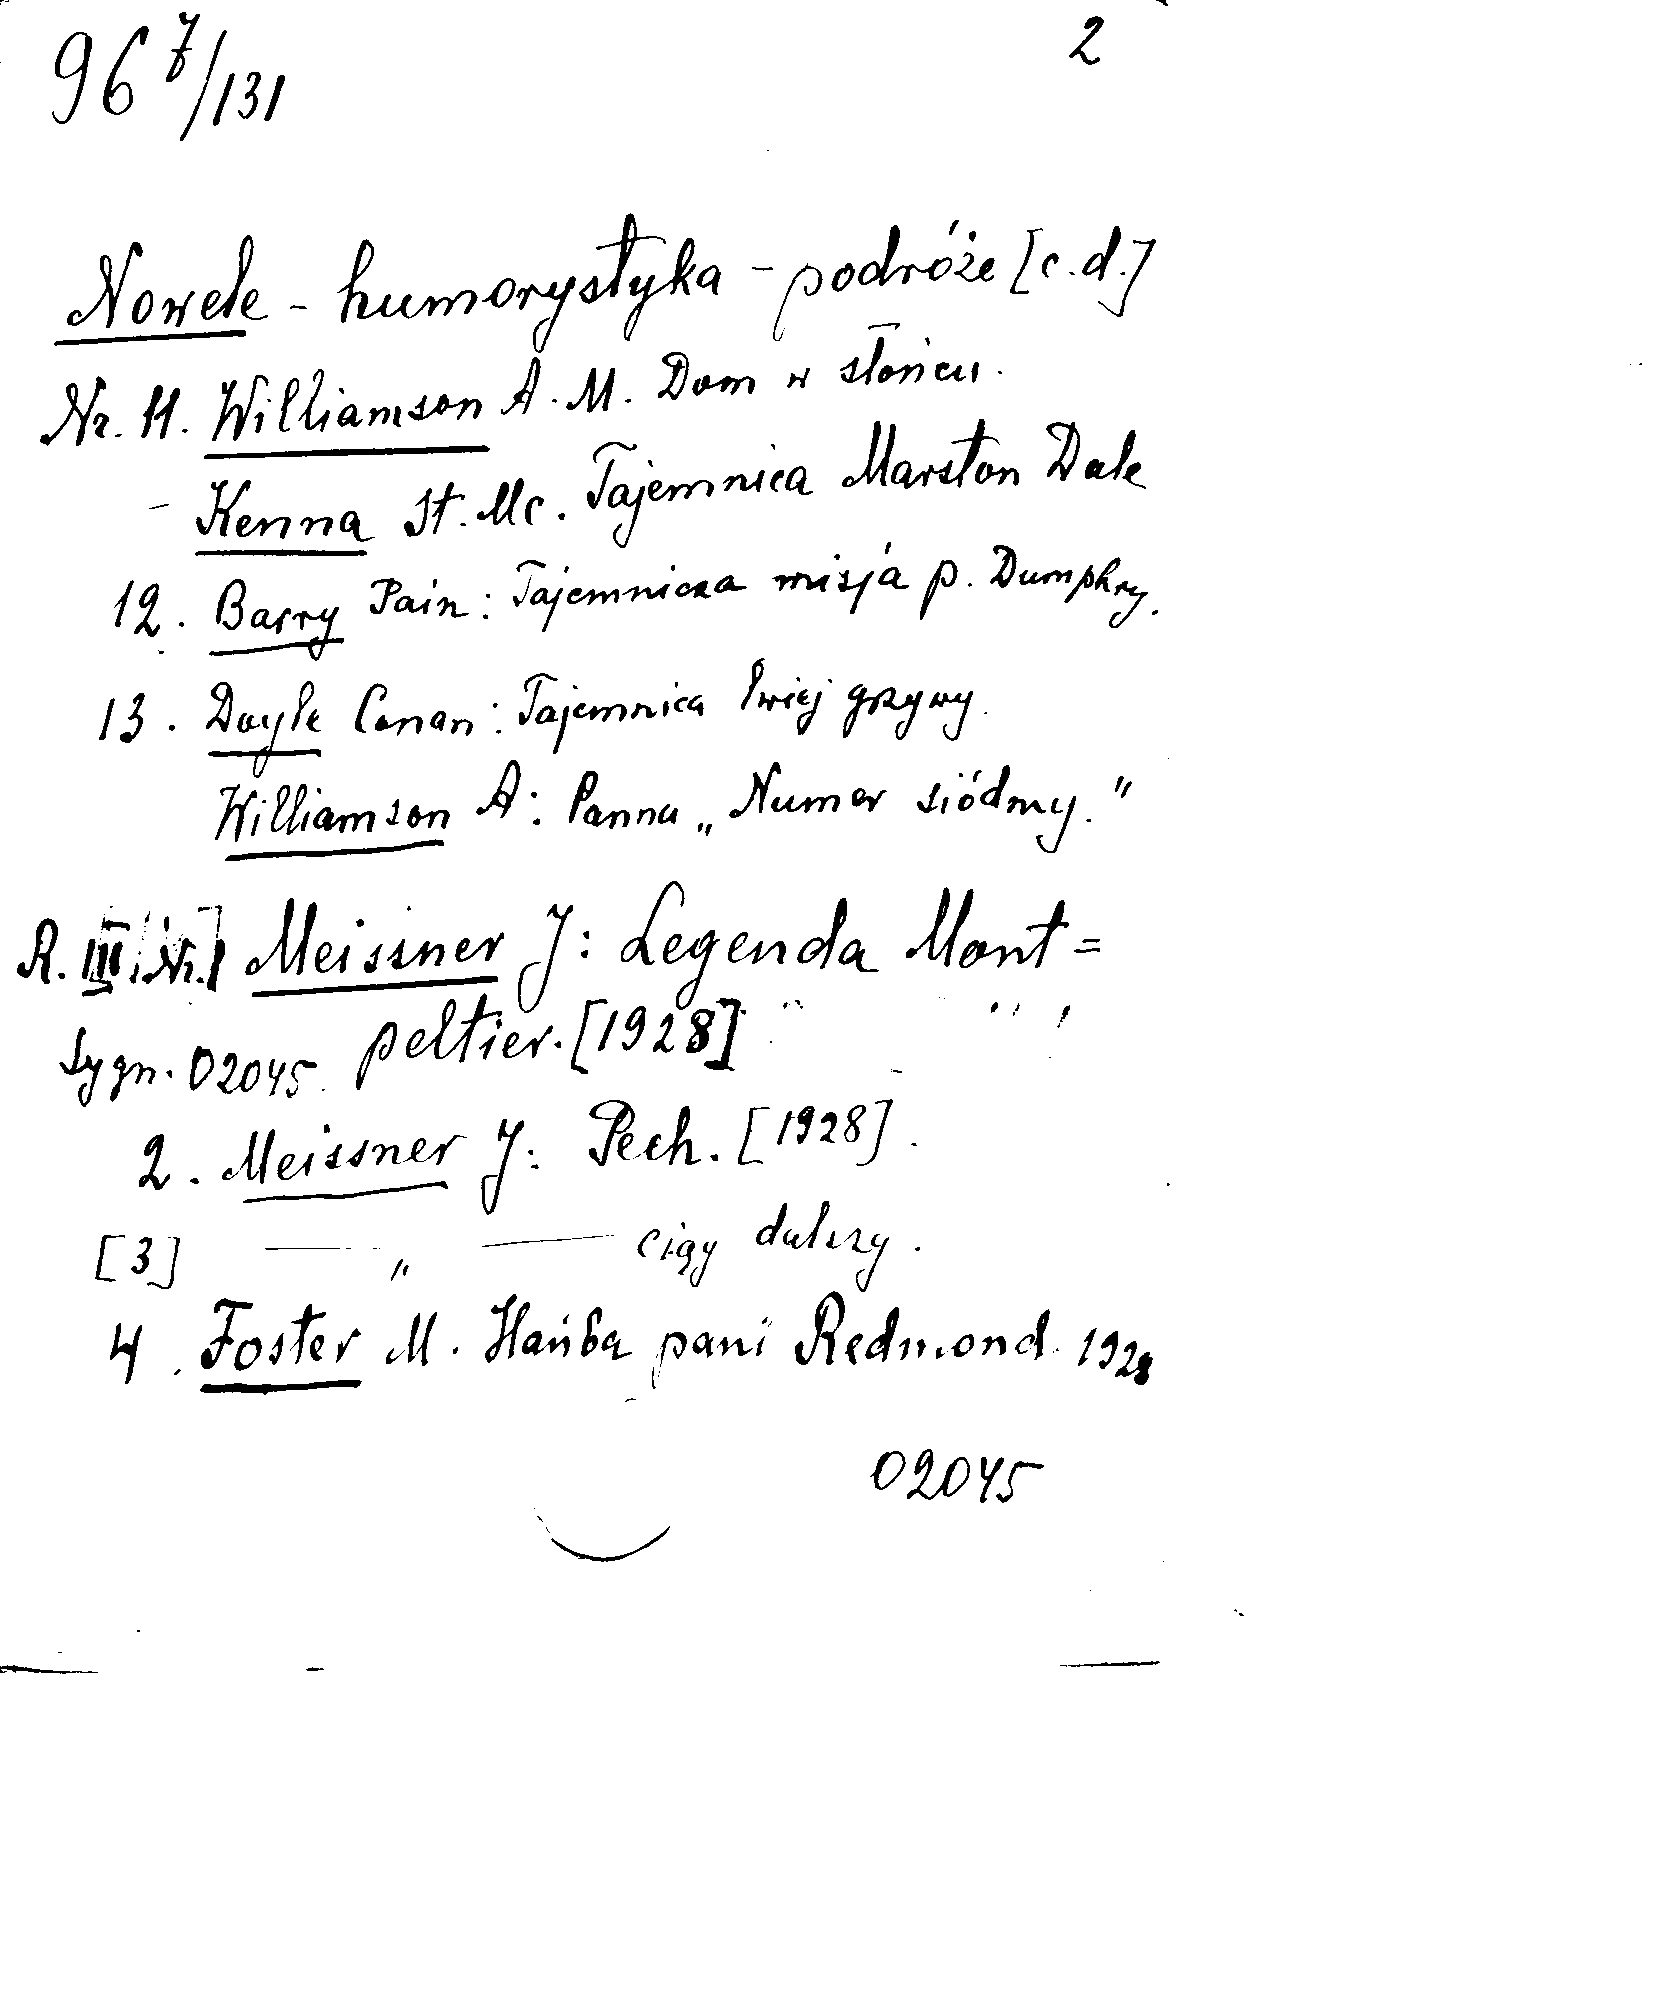 96 7/131
2
Nowele - humorystyka - podróże [c.d.]
Nr. 11. Williamson A. M. Dom w słońcu.
- Kenna St. Mc. Tajemnica Marston Dale
12. Barry Pain: Tajemnicza misja p. Dumphry.
13. Doyle Conan: Tajemnica lwiej grzywy.
Williamson A: Panna „Numer siódmy."
R. III. Nr. 1 Meissner J: Legenda Mont=
Sygn. 02045. peltier. [1928]
2. Meissner J: Pech. [1928].
[3] — „ — ciąg dalszy.
4. Foster M. Hańba pani Redmond. 1928
02045